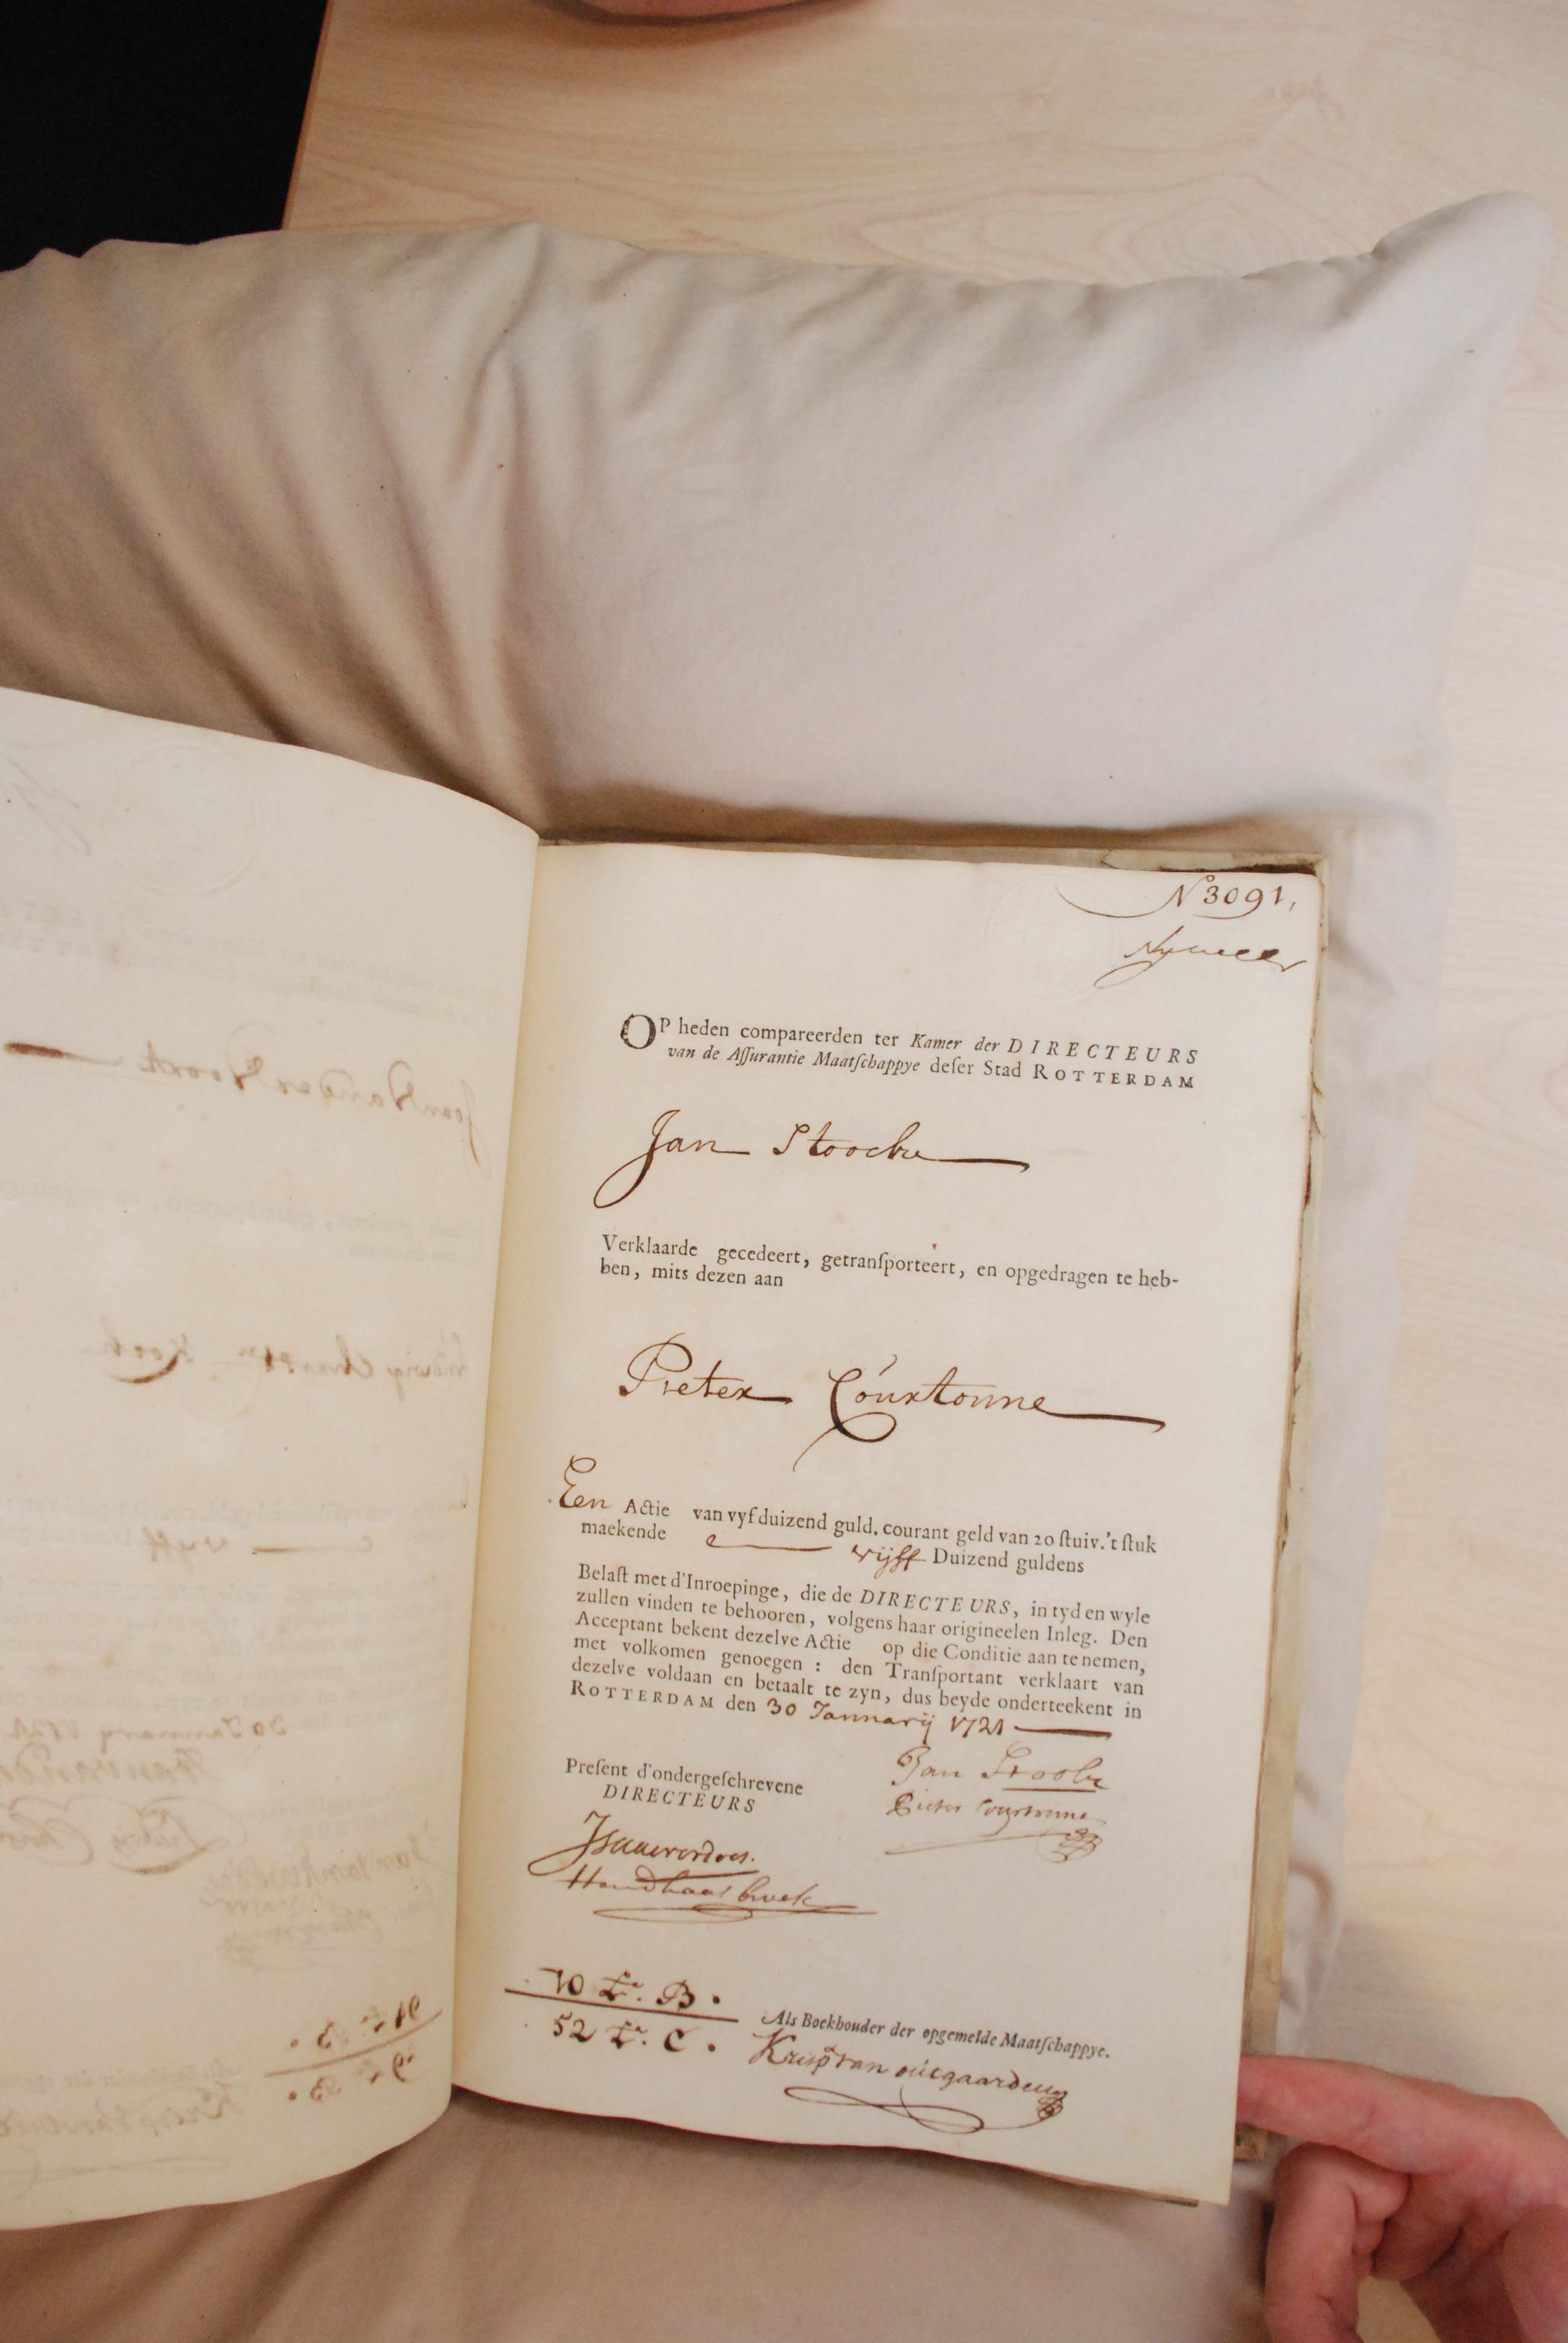 N 3091,
OP heden compareerden ter Kamer der DIRECTEURS
van de Aſſurantie Maatſchappye deſer Stad ROTTERDAM
Jan
Verklaarde gecedeert, getranſporteert, en opgedragen te heb-
ben, mits dezen aan
Pieter Courtonne
Een Actie van vyf duizend guld. courant geld van 20 ſtuiv. 't ſtuk
maekende vijff Duizend guldens
Belaſt met d'Inroepinge, die de DIRECTEURS, in tyd en wyle
zullen vinden te behooren, volgens haar origineelen Inleg. Den
Acceptant bekent dezelve Actie op die Conditie aan te nemen,
met volkomen genoegen : den Tranſportant verklaart van
dezelve voldaan en betaalt te zyn, dus beyde onderteekent in
ROTTERDAM den 30 Jannarij 1721
Jan
Pieter Courtonne
Preſent d'ondergeſchrevene
DIRECTEURS
10 Lª. B.
52 Lª. C.
Als Boekhouder der opgemelde Maatſchappye.
van uitgaarden